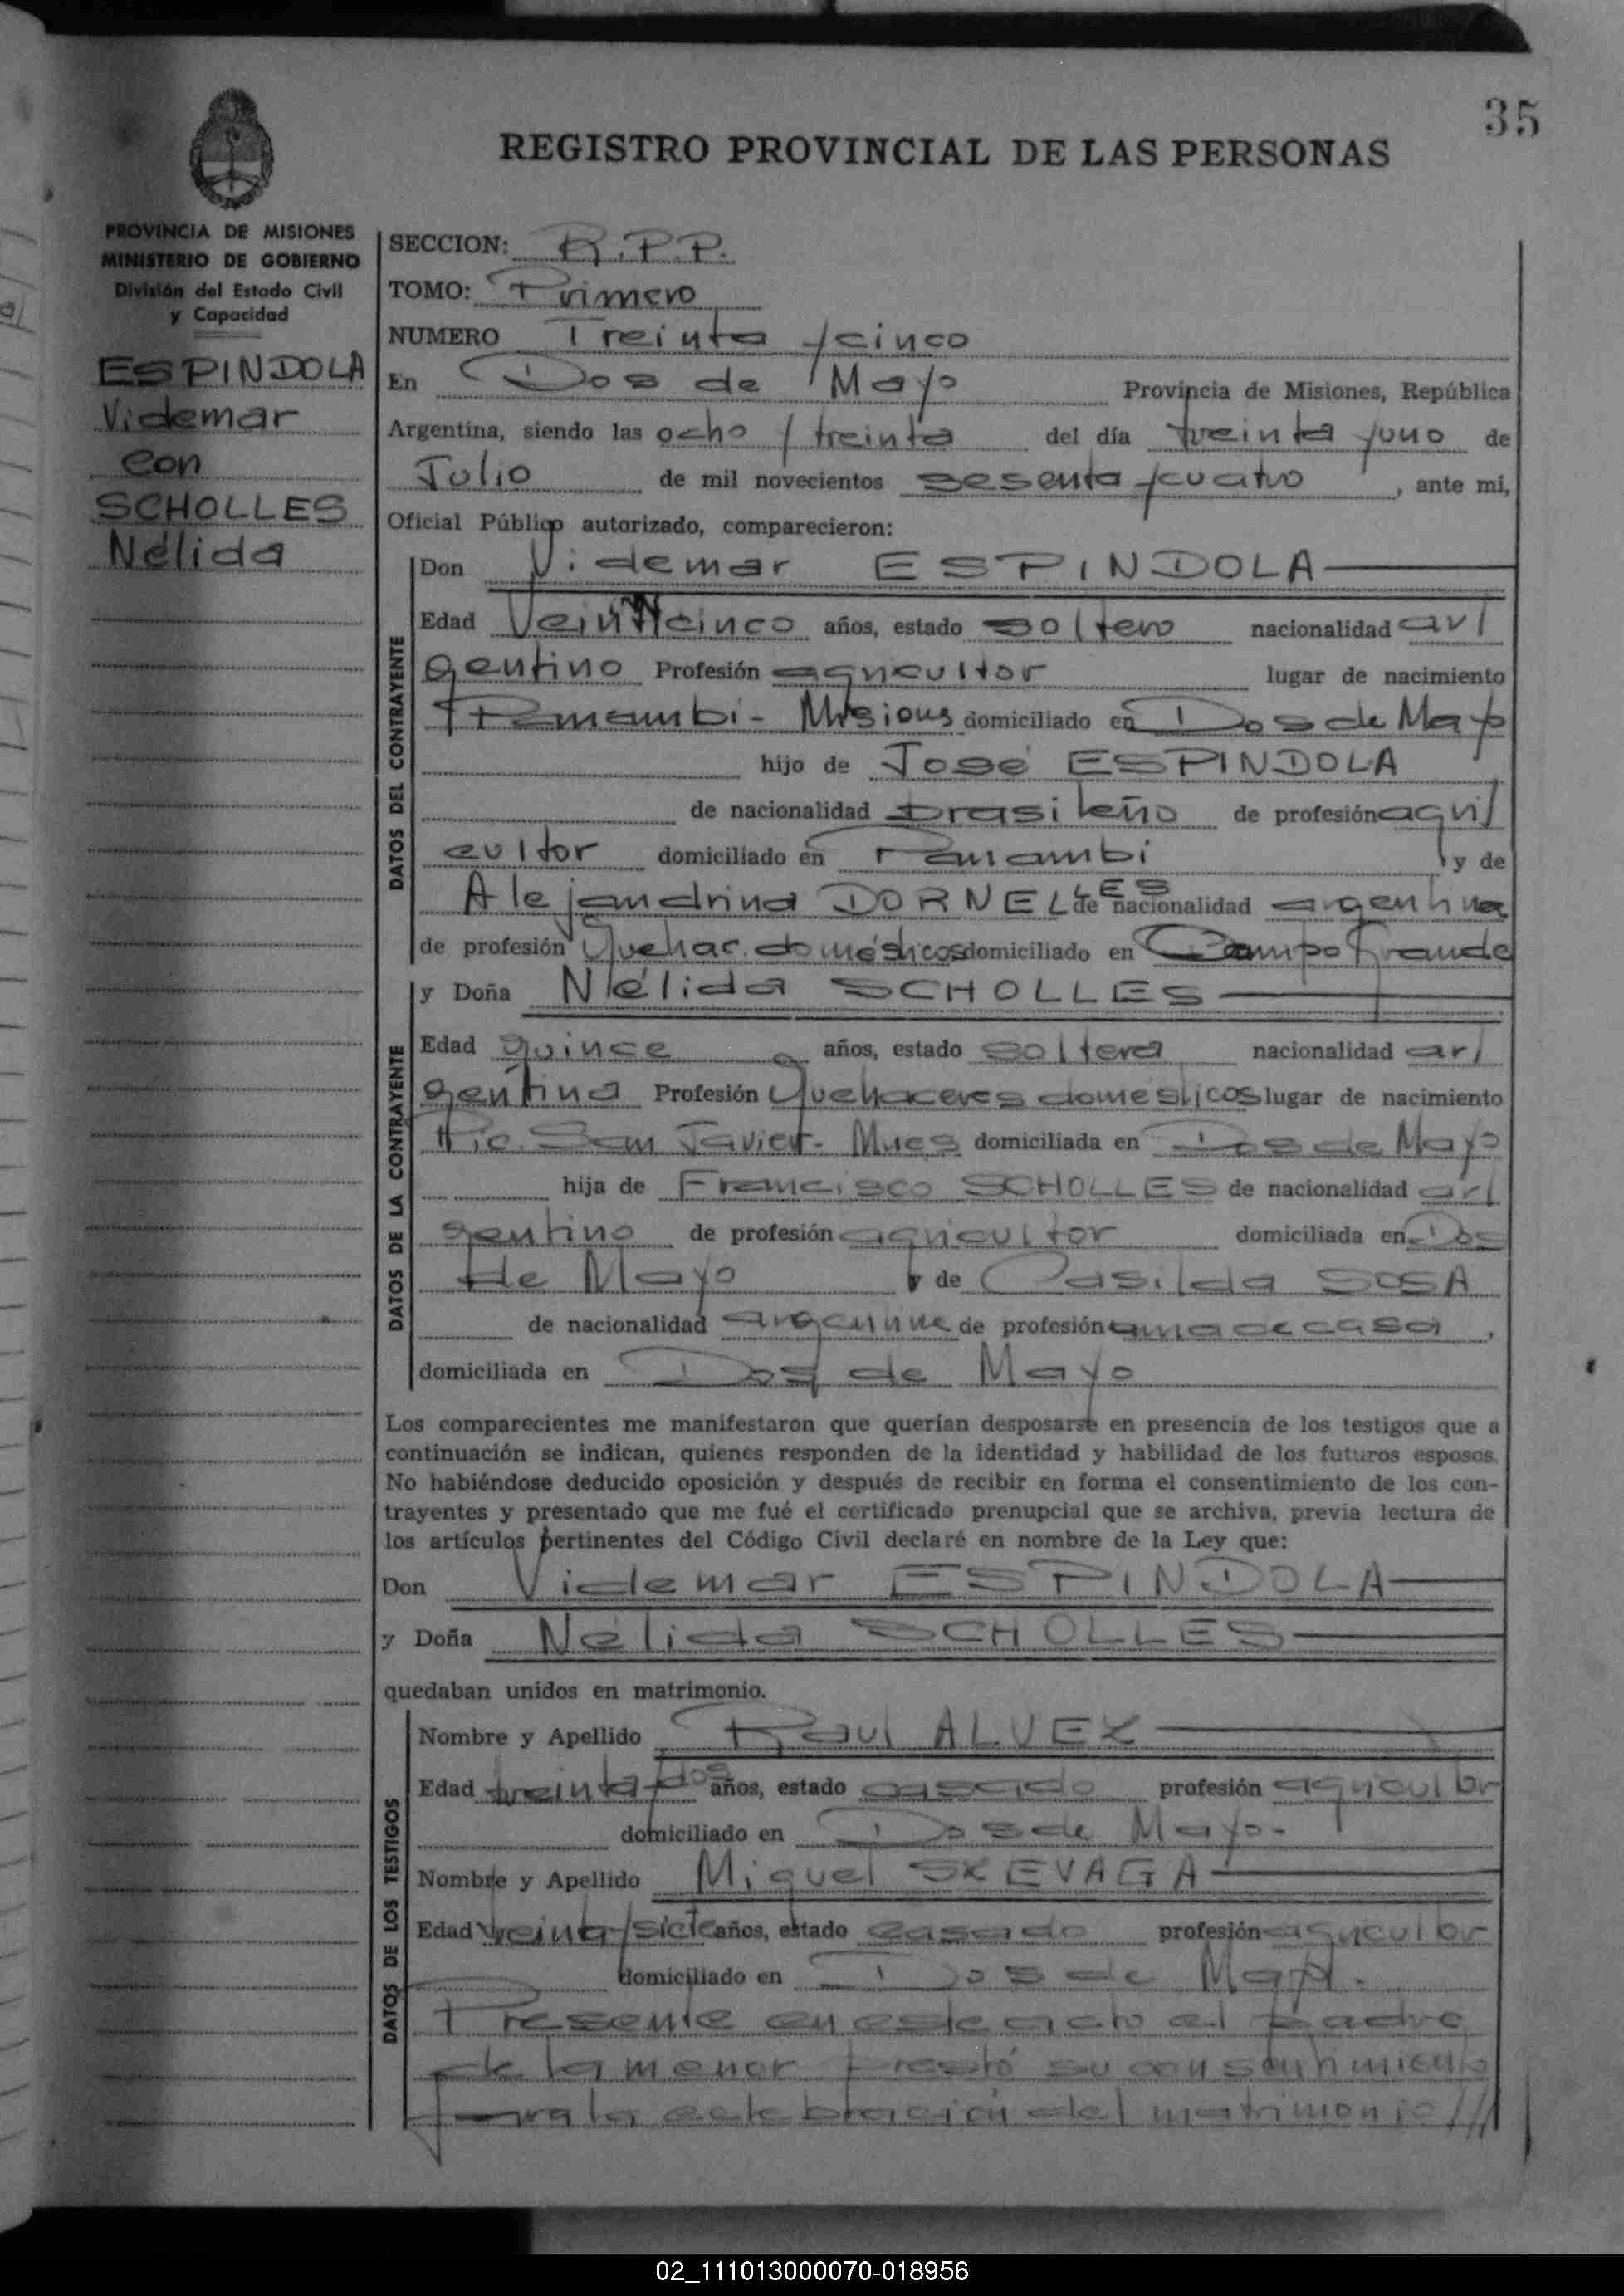 35
REGISTRO PROVINCIAL DE LAS PERSONAS
PROVINCIA DE MISIONES
MINISTERIO DE GOBIERNO
División del Estado Civil
y Capacidad
ESPINDOLA
Videmar
con
SCHOLLES
Nélida
SECCION: R.P.P.
TOMO: Primero
NUMERO Treinta y cinco
En Dos de Mayo Provincia de Misiones, República
Argentina, siendo las ocho y treinta del día treinta y uno de
Julio de mil novecientos sesenta y cuatro, ante mi,
Oficial Público autorizado, comparecieron:
DATOS DEL CONTRAYENTE
Don Videmar ESPINDOLA
Edad Veinticinco años, estado soltero nacionalidad ar/
gentino Profesión agricultor lugar de nacimiento
Panambi - Misiones domiciliado en Dos de Mayo
hijo de José ESPINDOLA
de nacionalidad brasileño de profesión agri/
cultor domiciliado en Panambi y de
Alejandrina DORNELLES de nacionalidad argentina
de profesión Quehac. domésticos domiciliado en Campo Grande
DATOS DE LA CONTRAYENTE
y Doña Nélida SCHOLLES
Edad quince años, estado soltera nacionalidad ar/
gentina Profesión Quehaceres domésticos lugar de nacimiento
Pic. San Javier - Mnes domiciliada en Dos de Mayo
hija de Francisco SCHOLLES de nacionalidad ar/
gentino de profesión agricultor domiciliada en Dos
de Mayo y de Casilda SOSA
de nacionalidad argentina de profesión ama de casa,
domiciliada en Dos de Mayo
Los comparecientes me manifestaron que querían desposarse en presencia de los testigos que a
continuación se indican, quienes responden de la identidad y habilidad de los futuros esposos.
No habiéndose deducido oposición y después de recibir en forma el consentimiento de los con-
trayentes y presentado que me fué el certificado prenupcial que se archiva, previa lectura de
los artículos pertinentes del Código Civil declaré en nombre de la Ley que:
Don Videmar ESPINDOLA
y Doña Nélida SCHOLLES
quedaban unidos en matrimonio.
DATOS DE LOS TESTIGOS
Nombre y Apellido Raul ALVEZ
Edad treinta y dos años, estado casado profesión agricultor
domiciliado en Dos de Mayo.-
Nombre y Apellido Miguel SKEVAGA
Edad treinta y siete años, estado casado profesión agricultor
domiciliado en Dos de Mayo.
Presente en este acto el padre
de la menor prestó su consentimiento
para la celebración del matrimonio///
02_111013000070-018956